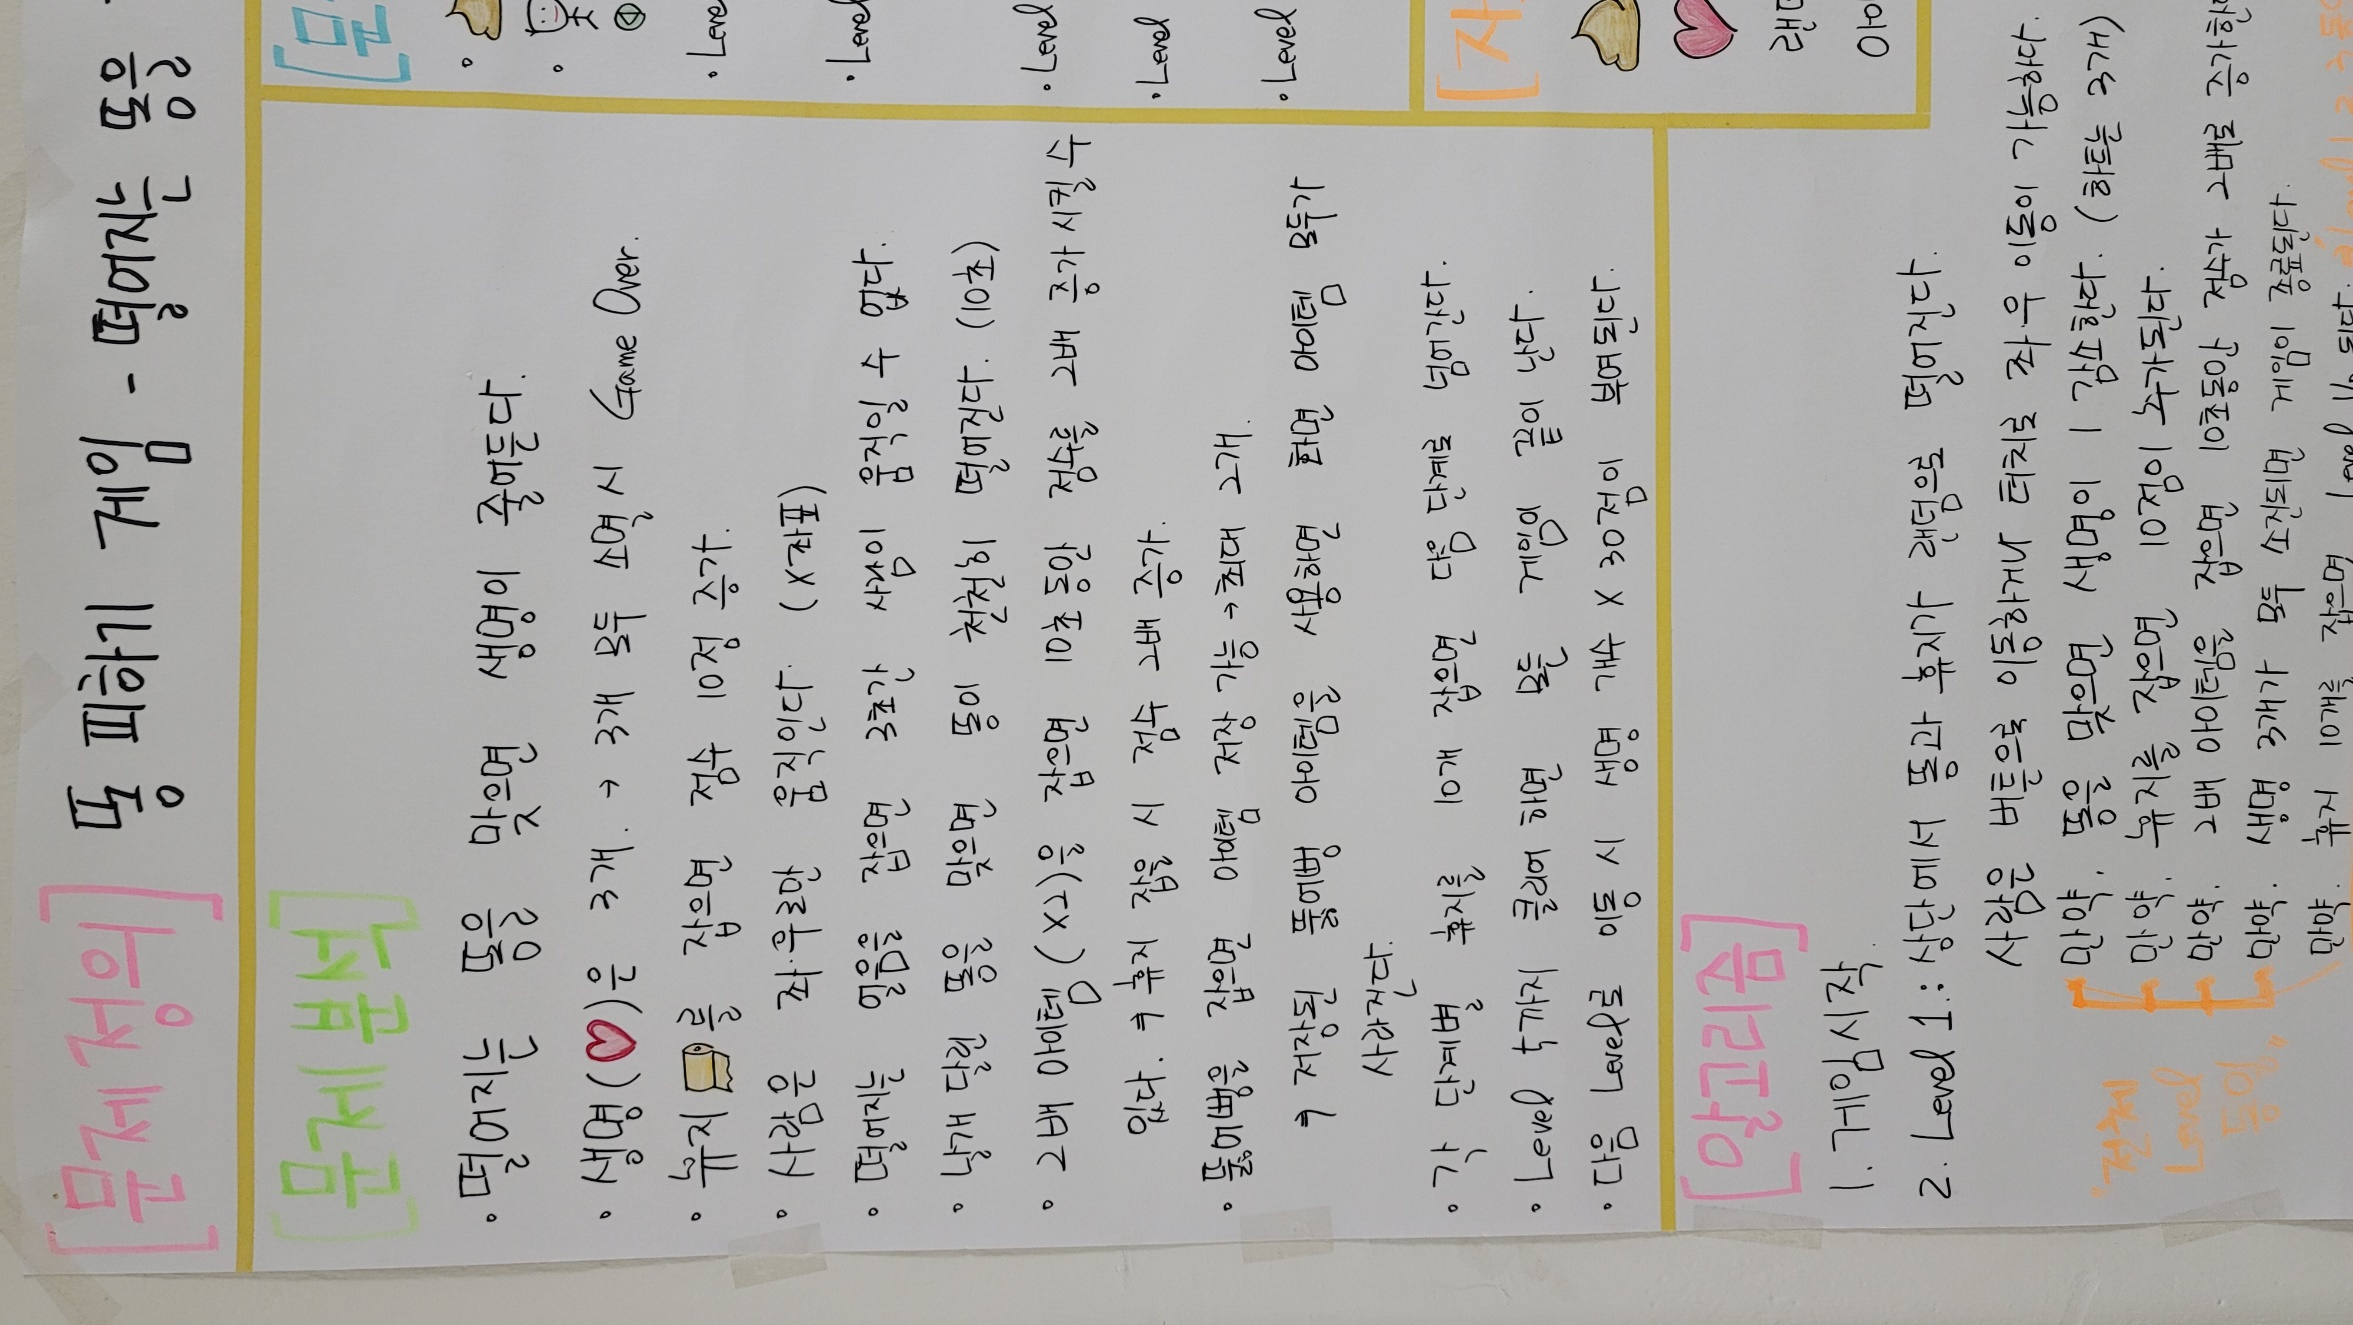 [문제 정의] 똥 피하기 게임 - 떨어지는 똥을
[문제 분석]
• 떨어지는 똥을 맞으면 생명이 줄어든다.
• 생명(♡)은 3개. → 3개 모두 소멸 시 Game Over.
• 휴지 를 잡으면 점수 10점 증가.
• 사람은 좌·우로만 움직인다. (X좌표)
• 떨어지는 얼음을 잡으면 3초간 사람이 움직일 수 없다.
• 날개 달린 똥을 맞으면 똥이 천천히 떨어진다. (10초)
• 2배 아이템(X2)을 잡으면 10초 동안 점수를 2배 증가 시킬 수
있다. ㅋ 휴지 잡을 시 점수 2배 증가.
• 뚫어뻥을 잡으면 아이템 저장 가능 → 최대 2개.
ㅋ 저장된 뚫어뻥 아이템을 사용하면 화면 아이템 모두가
사라진다.
• 각 단계별 휴지를 10개 잡으면 다음 단계로 넘어간다.
• Level 5까지 클리어 하면 똥 게임이 끝이 난다.
• 다음 Level로 이동 시 생명 개수 X 30점이 부여된다.
• Level
• Level
• Level
• Level
• Level
[알고리즘]
1. 게임 시작.
2. Level 1. : 상단에서 똥과 휴지가 랜덤으로 떨어진다.
사람은 버튼으로 이동하거나 터치로 좌·우 이동이 가능하다.
만약. 똥을 맞으면 생명이 1 감소한다. (하트는 3개)
만약. 휴지를 잡으면 10점이 추가된다.
만약. 2배 아이템을 잡으면 10초동안 점수가 2배로
만약. 생명 3개가 똑 소진되면 게임이 종료된다.
만약. 휴지 10개를 잡으면 Level
"전체
Level
동일"